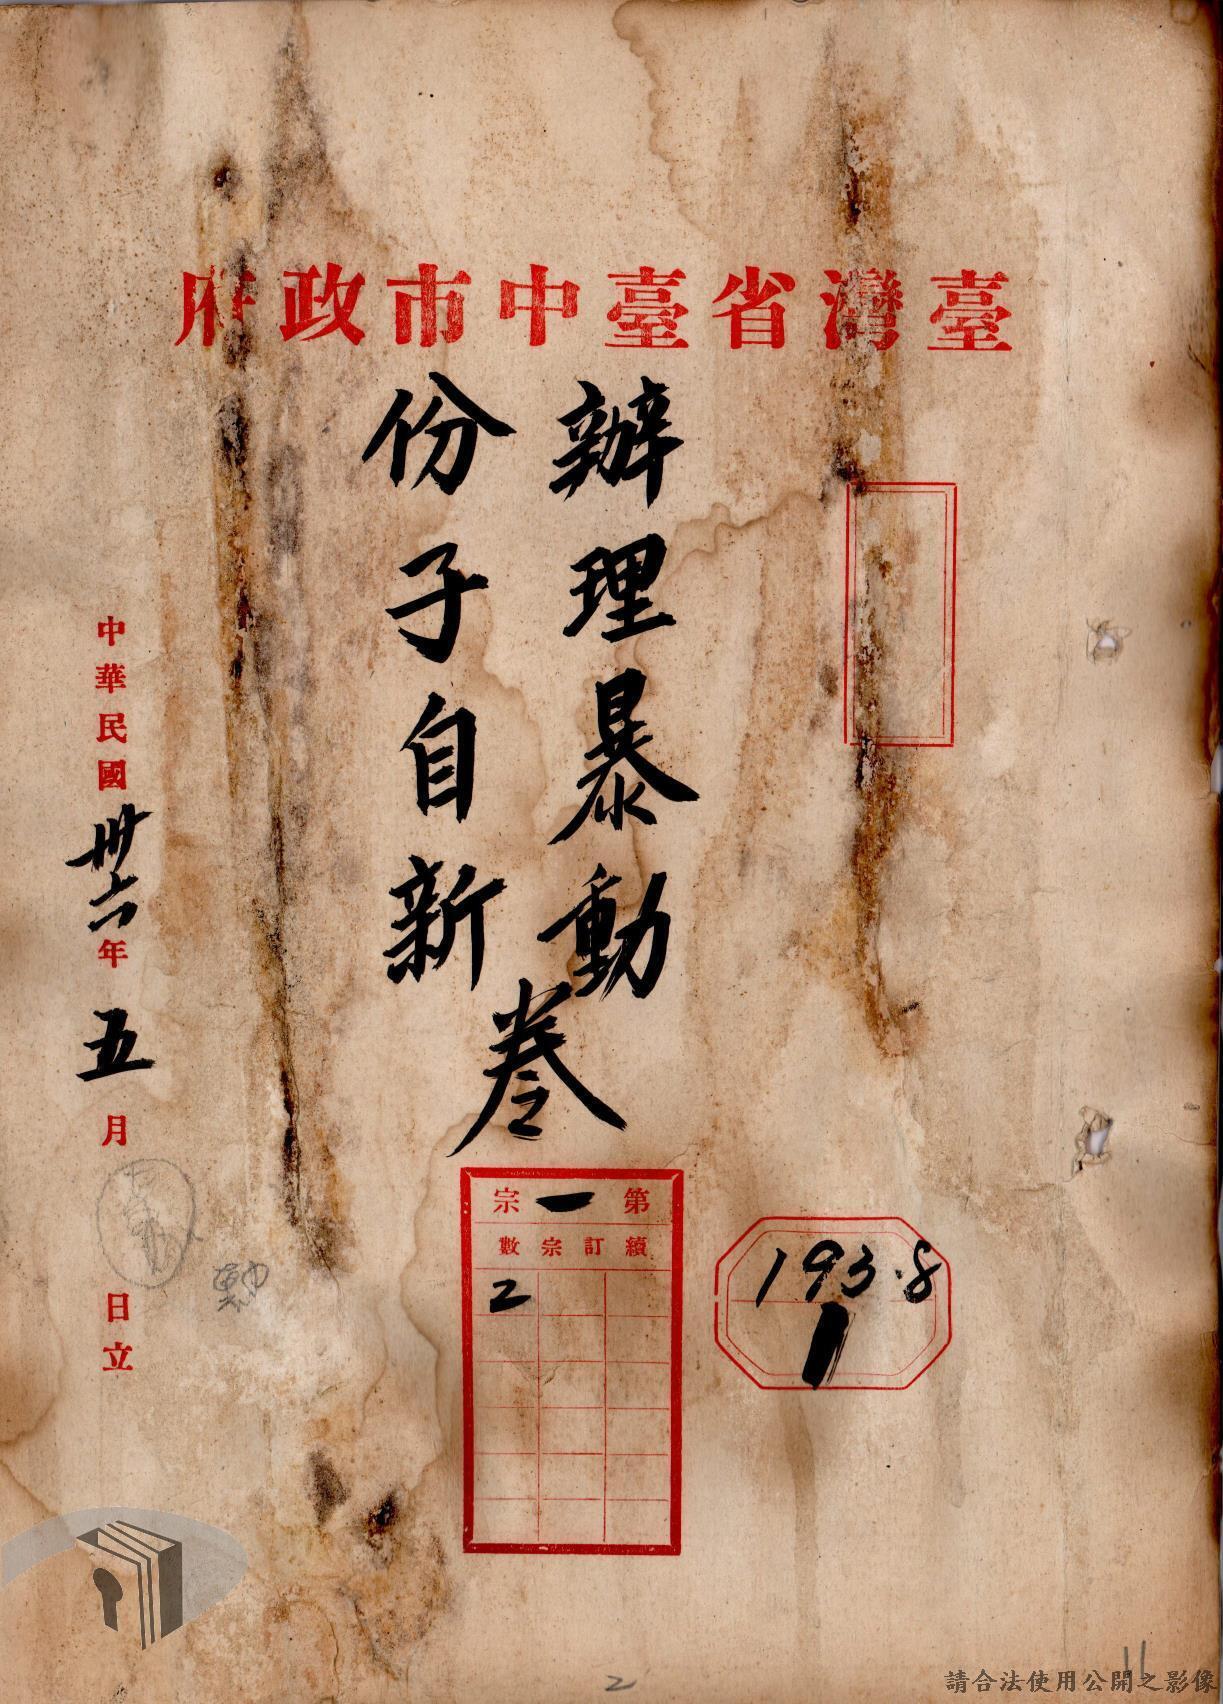 臺灣省臺中市政府
辦理暴動
份子自新
卷
中華民國卅六年五月日立
第一宗
續訂宗數
2
193.8
1
2
11
請合法使用公開之影像